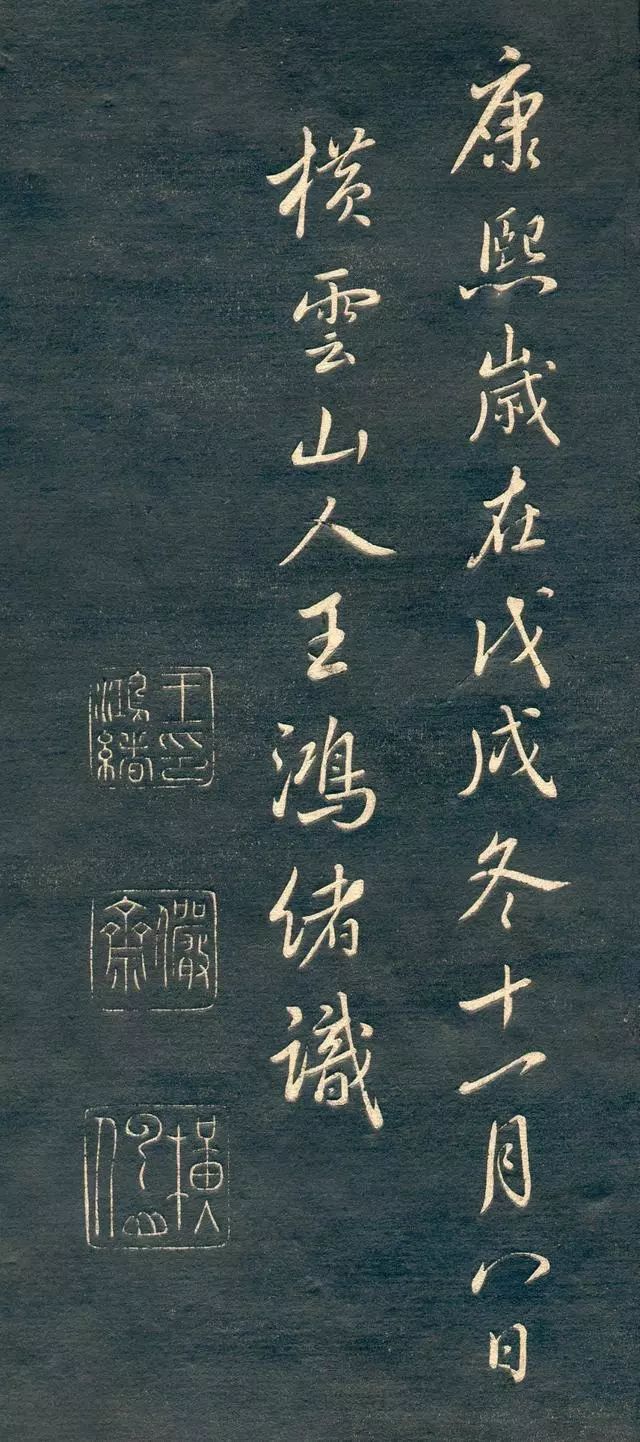 康熙歲在戊戌冬十一月八日
橫雲山人王鴻緒識
王印鴻緒
儼齋
橫云山人